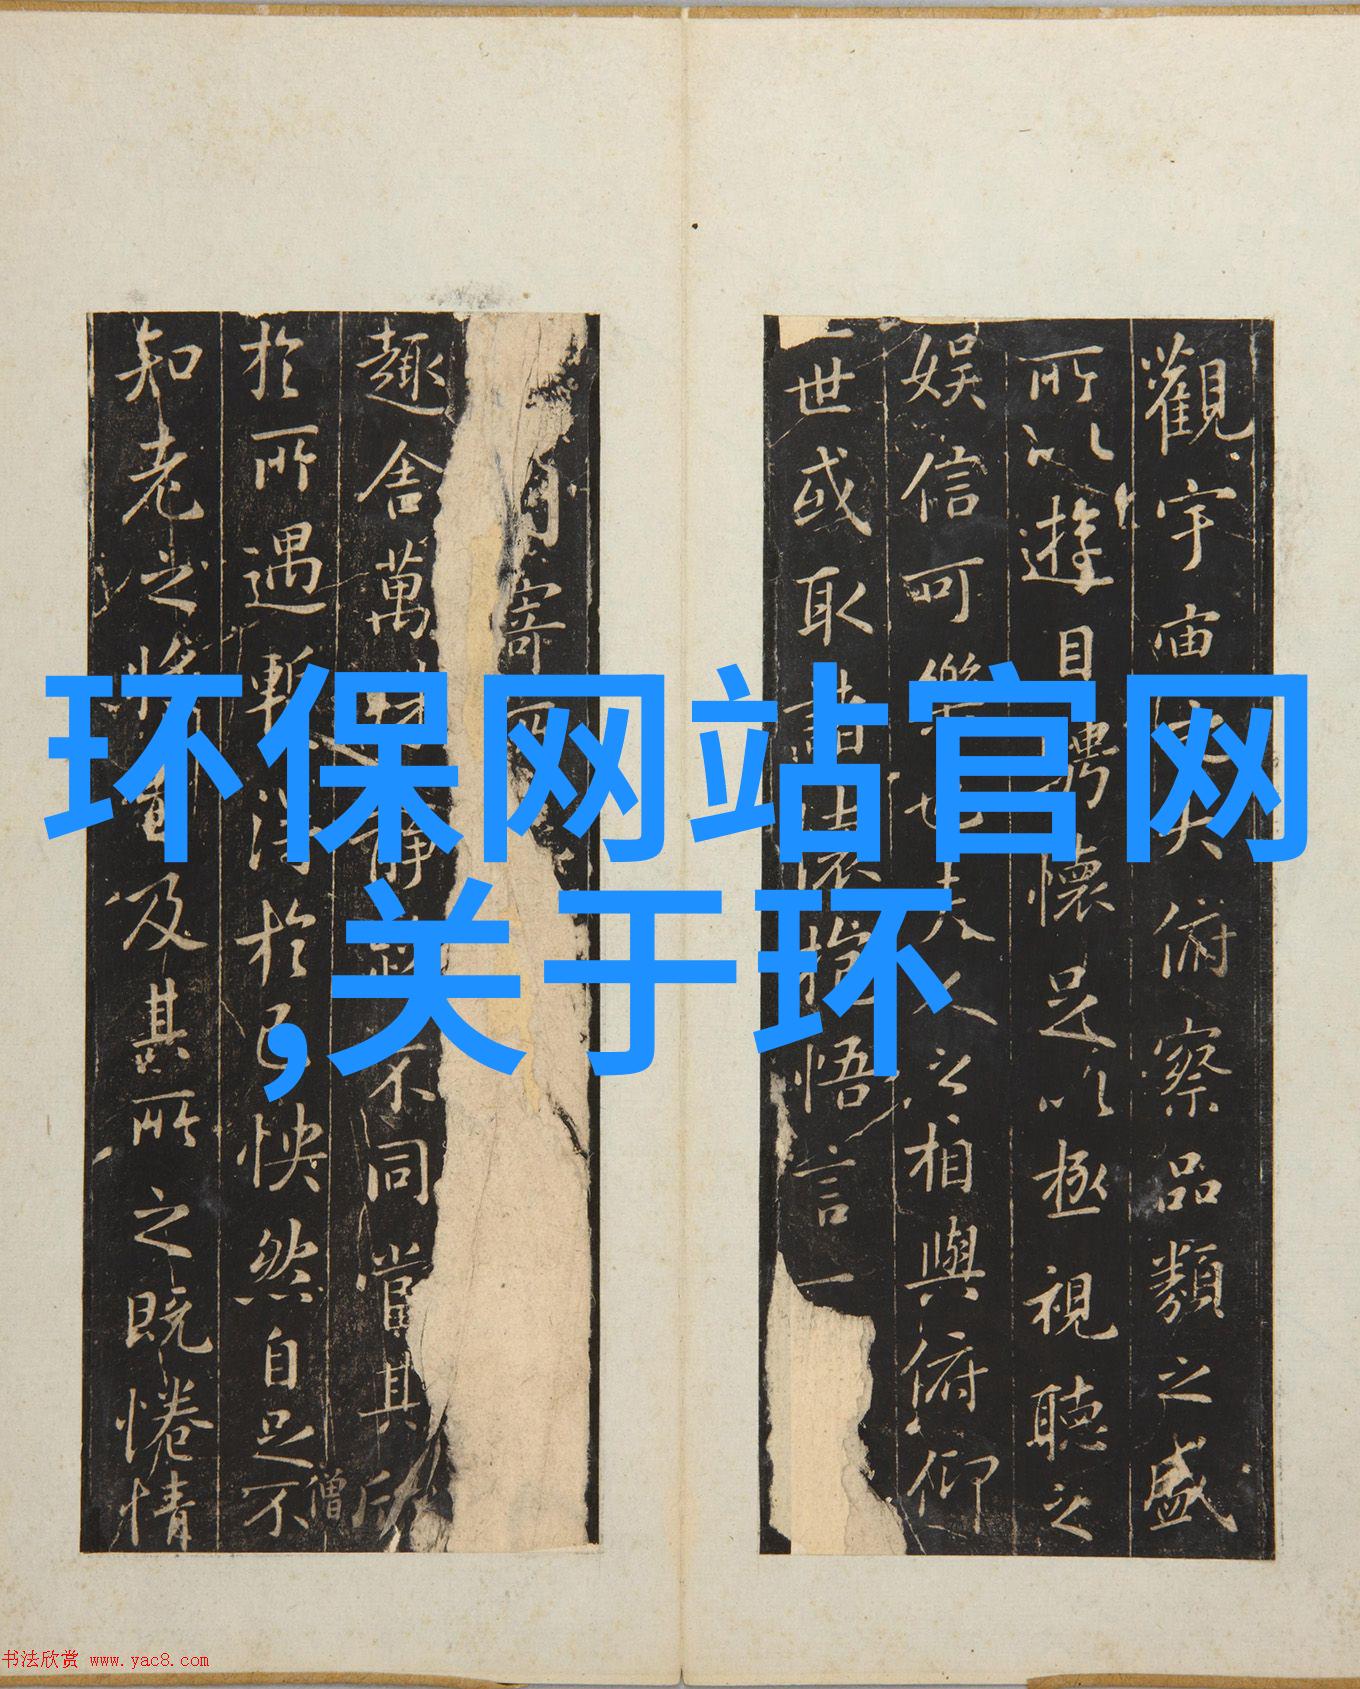 觀宇宙之大俯察品類之盛
所以遊目騁懷足以極視聽之
娱信可樂也夫人之相與俯仰
一世或取諸懷抱悟言一
寄
趣舍萬殊静躁不同當其欣
於所遇暫得於己怏然自足不
僧
知老之將至及其所之既惓情
环保网站官网
,关于环
书法欣赏 www.yac8.com